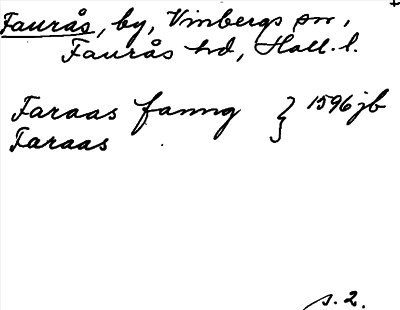 Faurås, by, Vinbergs sn,
Faurås hd, Hall. l.
Faraas fanng } 1596 jb
Faraas
s. 2.